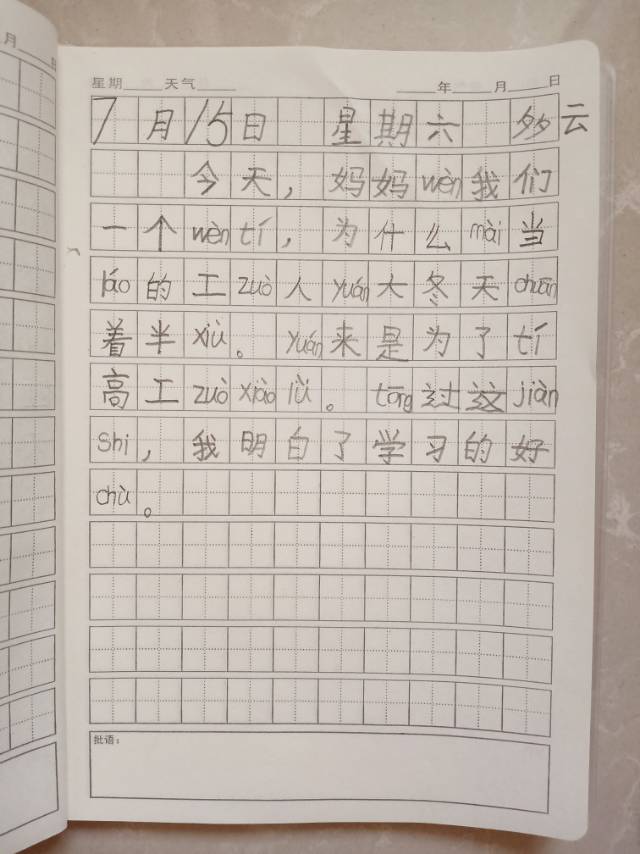 月 日
星期 天气 年 月 日
7月15日 星期六 多云
今天，妈妈wèn我们
一个wèntí，为什么mài当
láo的工zuò人yuán大冬天chuān
着半xiù。yuán来是为了tí
高工zuòxiàolǜ。tōng过这jiàn
shi，我明白了学习的好
chù。
批语：